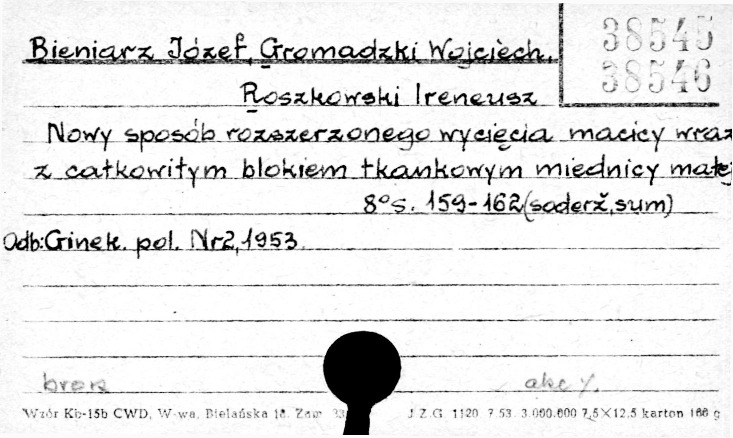 38545
38546
Bieniarz Józef, Gromadzki Wojciech,
Roszkowski Ireneusz
Nowy sposób rozszerzonego wycięcia macicy wraz
z całkowitym blokiem tkankowym miednicy małej
8° s. 159-162 (soderž, sum)
Odb: Ginek. pol. Nr 2, 1953
brosz akc y.
Wzór Kb-15b CWD, W-wa, Bielańska 18. Zam 33 J.Z.G. 1120 7 53. 3.000.000 7,5×12,5 karton 166 g